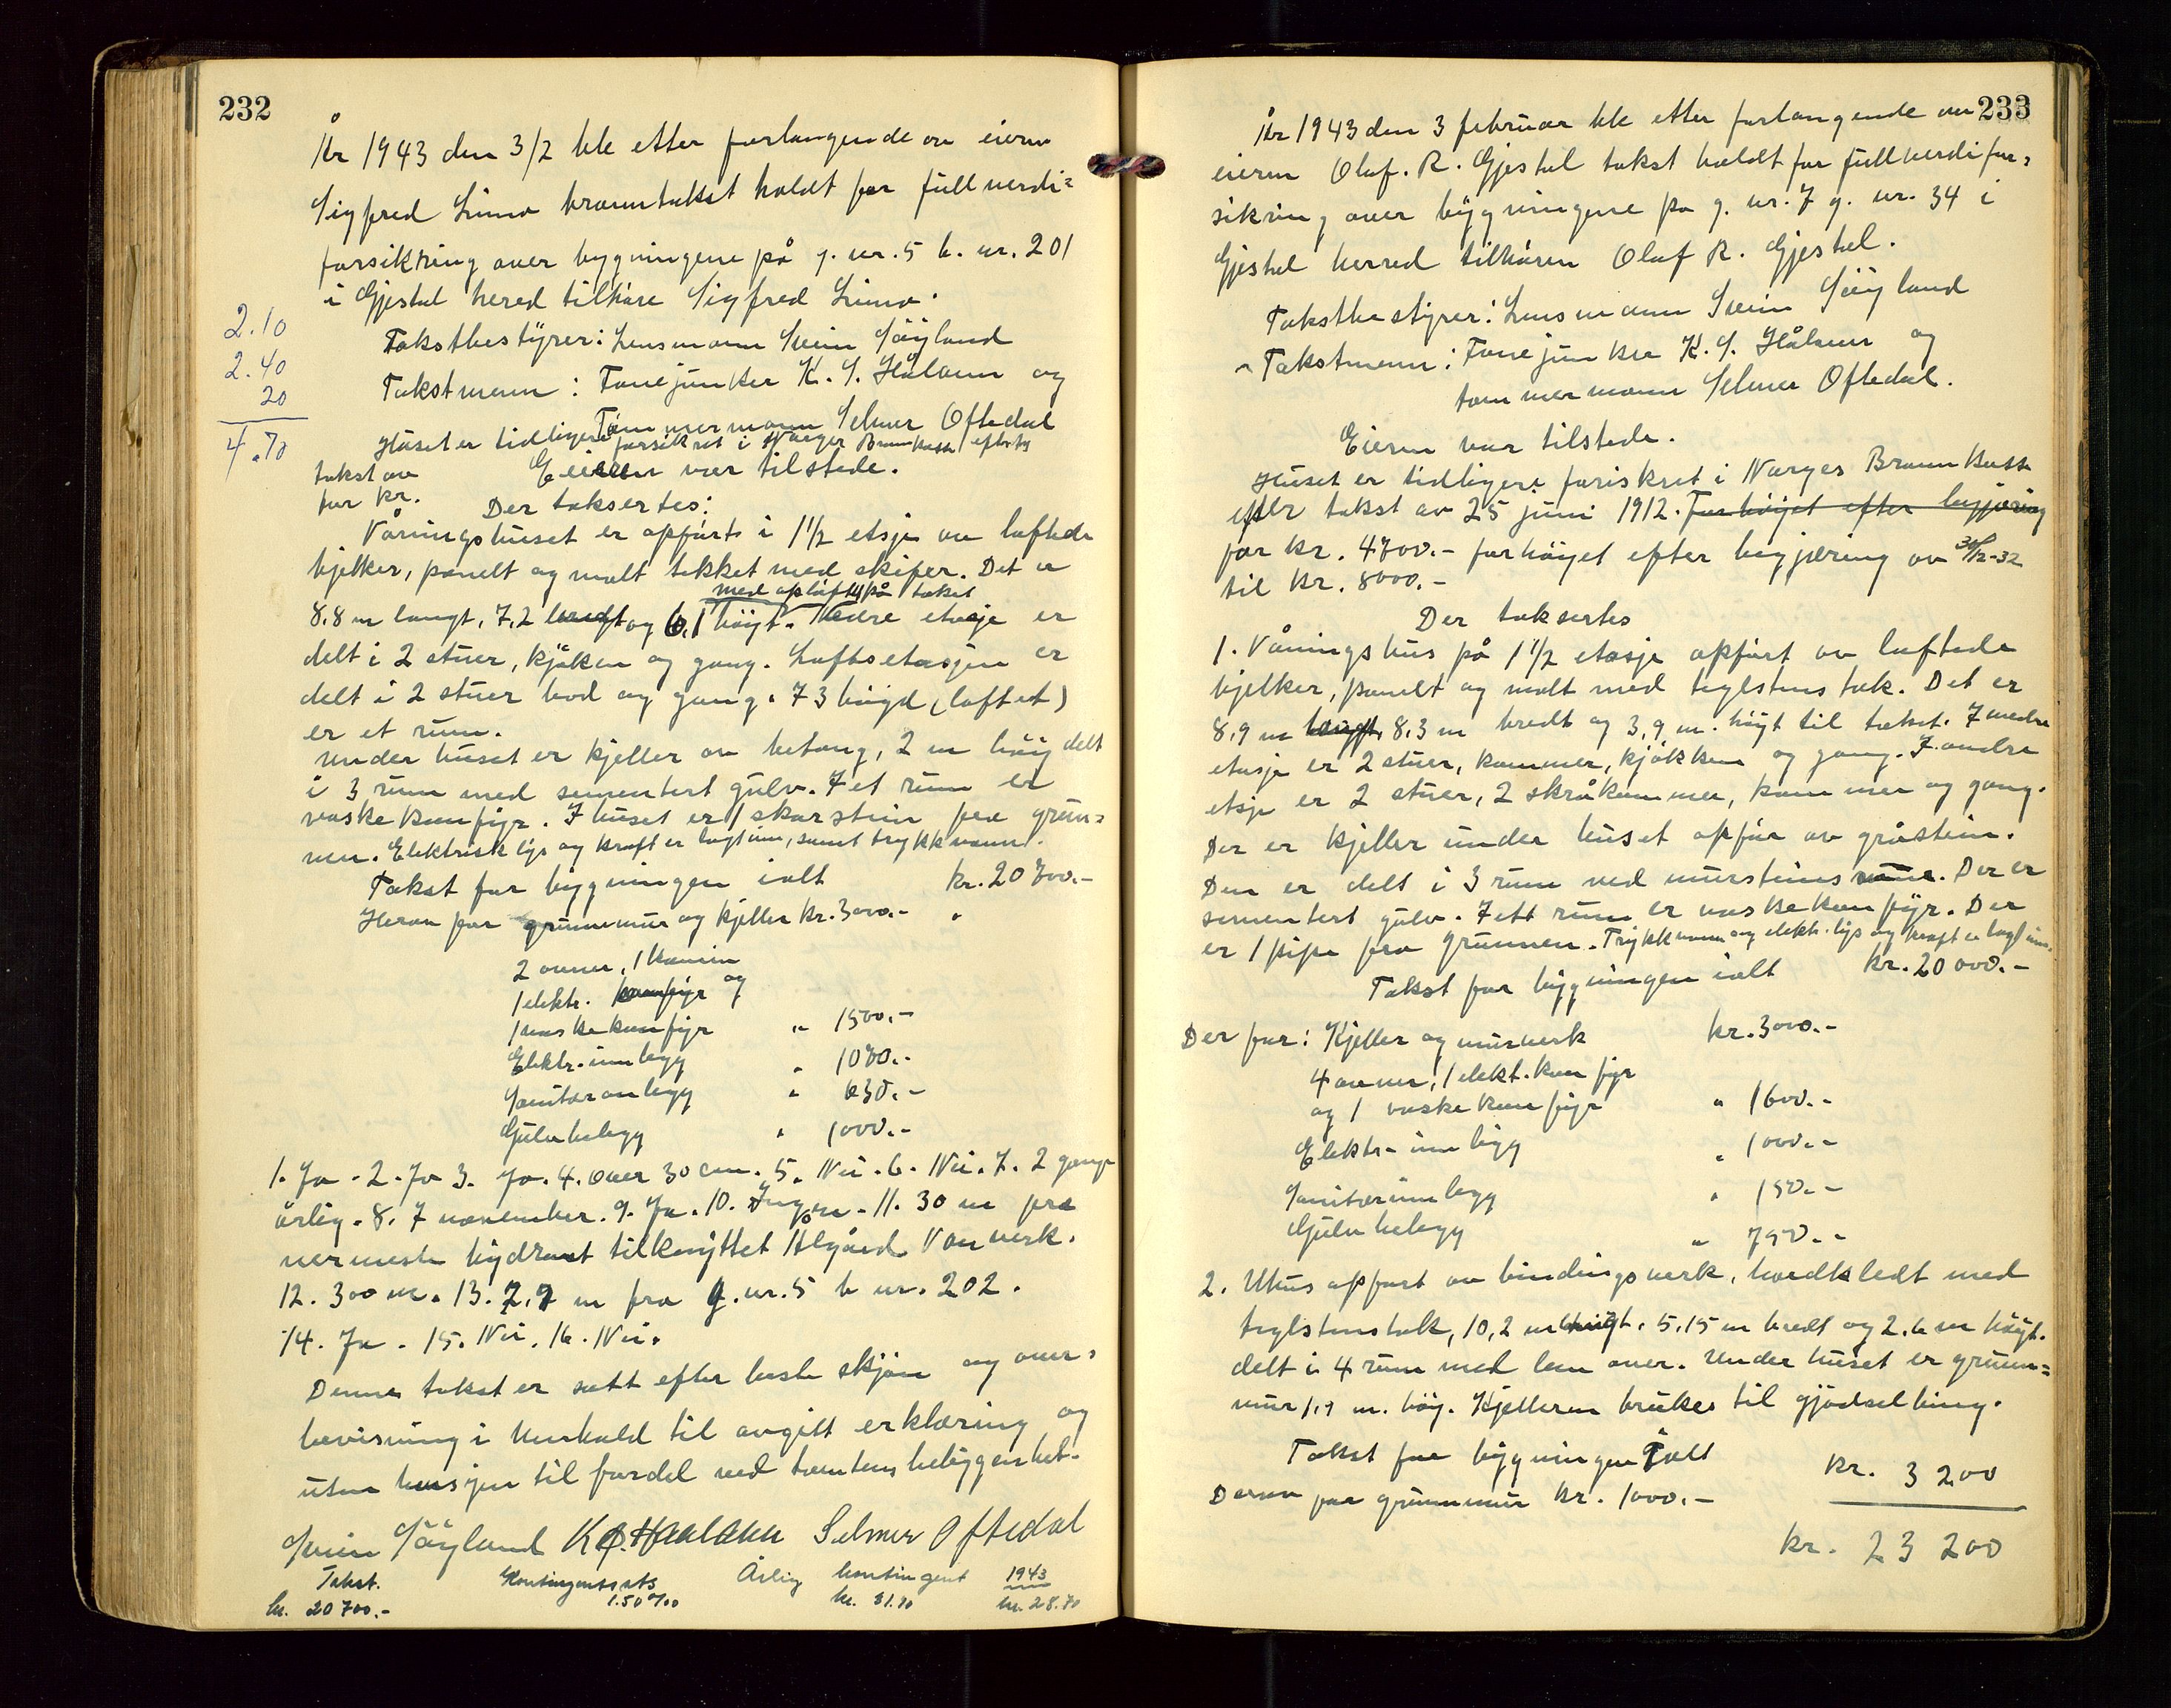 232
År 1943 den 3/2 ble etter forlangende av eieren
Sigfred Limo branntakst holdt for fullverdi=
forsikring over bygningene på g. nr. 5 b. nr. 201
i Gjestal herred tilhøre Sigfred Limo.
2.10
2.40
20
4.70
Takstbestyrer: Lensmann Svein Søyland
Takstmenn: Fanejunker K. S. Hålann og
Tømmermann Selmer Oftedal
Huset er tidligere forsikret i Norges Brannkasse efter
takst av
for kr.
Eieren var tilstede.
Der taksertes:
Våningshuset er oppført i 1 1/2 etsje av laftede
bjelker, panelt og malt tekket med skifer. Det er
med opløft på taket
8,8 m langt, 7,2 bredt og 6,1 høyt. Nedre etasje er
delt i 2 stuer, kjøken og gang. Loftsetasjen er
delt i 2 stuer bod og gang. I 3 høgd (loftet)
er et rum.
Under huset er kjeller av betong, 2 m høy delt
i 3 rum med sementert gulv. I et rum er
vaskekomfyr. I huset er 1 skorstein fra grun=
nen. Elektrisk lys og kraft er lagt inn, samt trykkvann.
Takst for bygningen ialt kr. 20 700.-
Herav for grunnmur og kjeller kr. 3000.-
2 ovner, 1 kamin
1 elektr. komfyr og
1 vaskekomfyr " 1500.-
Elektr. innlegg " 1000.-
Sanitæranlegg " 650.-
Gulvbelegg " 1000.-
1. Ja. 2. Ja 3. Ja. 4. over 30 cm. 5. Nei. 6. Nei. 7. 2 gange
årlig. 8. 7 november. 9. Ja. 10. Ingen. 11. 30 m fra
nermeste hydrant tilknyttet Ålgård Vanverk.
12. 300 m. 13. 7,7 m fra g. nr. 5 b nr. 202.
14. Ja. 15. Nei. 16. Nei.
Denne takst er satt efter beste skjøn og over=
bevisning i henhold til avgitt erklæring og
uten hensyn til fordel ved tomtens beliggenhet.
Svein Søyland K. S. Haalann Selmer Oftedal
Takst. Kontingentsats Årlig kontingent 1943
kr. 20700.- 1.50 ‰ kr. 31.10 kr. 28.70
233
År 1943 den 3 februar ble etter forlangende av
eieren Olaf. R. Gjestal takst holdt for fullverdifor=
sikring over bygningene på g. nr. 7 g. nr. 34 i
Gjestal herred tilhøren Olaf R. Gjestal.
Takstbestyrer: Lensmann Svein Søyland
Takstmenn: Fanejunker K. S. Hålann og
tømmermann Selmer Oftedal.
Eieren var tilstede.
Huset er tidligere foriskret i Norges Brannkasse
efter takst av 25 juni 1912. Forhøiet efter begjæring
for kr. 4700.- forhøiet efter begjæring av 31/12-32
til kr. 8000.-
Der taksertes
1. Våningshus på 1 1/2 etasje oppført av laftede
bjelker, panelt og malt med teglstens tak. Det er
8,9 m langt, 8,3 m bredt og 3,9 m. høyt til taket. I nedre
etasje er 2 stuer, kammer, kjøkken og gang. I andre
etsje er 2 stuer, 2 skråkammer, kammer og gang.
Der er kjeller under huset opfør av gråstein.
Den er delt i 3 rum ved mursteins mur. Der er
sementert gulv. I ett rum er vaskekomfyr. Der
er 1 pipe fra grunnen. Trykkvann og elektr. lys og kraft er lagt inn.
Takst for bygningen ialt kr. 20 000.-
Der for: Kjeller og murverk kr. 3000.-
4 ovner, 1 elekt. komfyr
og 1 vaskekomfyr " 1600.-
Elektr- innlegg " 1000.-
Sanitærinnlegg " 150.-
Gulvbelegg " 750.-
2. Uhus opført av bindingsverk, bordkledt med
teglstenstak, 10,2 m langt, 5,15 m bredt og 2,6 m høyt.
delt i 4 rum med lem over. Under huset er grunn=
mur 1,7 m. høy. Kjelleren brukes til gjødselbing.
Takst for bygningen ialt kr. 3 200
Derav for grunnmur kr. 1000.-
kr. 23 200